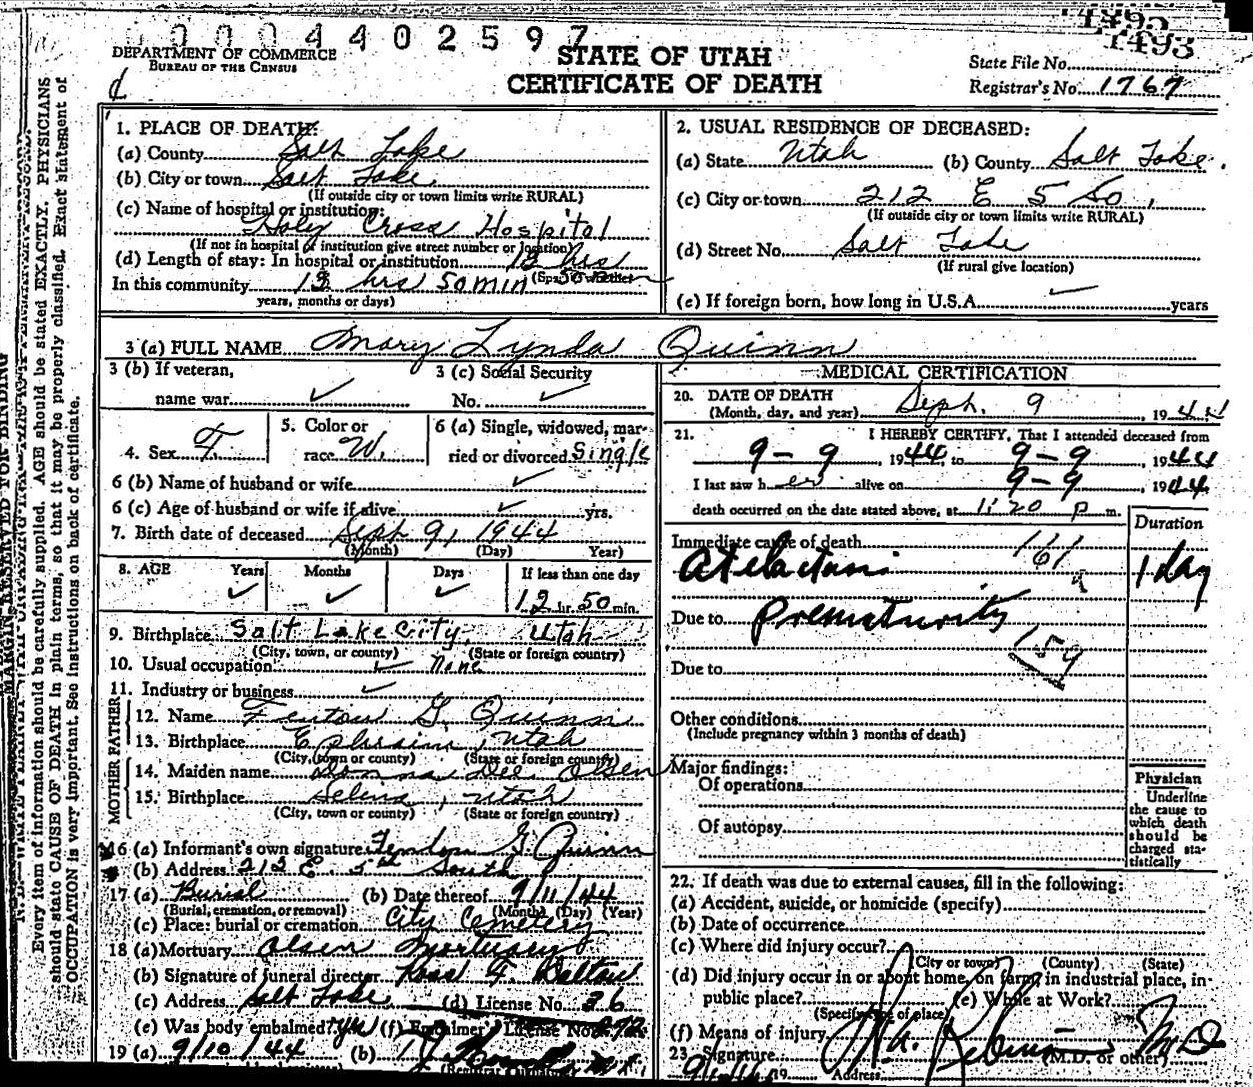 0 0 0 4 4 0 2 5 9 7
1495
1493
DEPARTMENT OF COMMERCE
BUREAU OF THE CENSUS
STATE OF UTAH
CERTIFICATE OF DEATH
State File No.
Registrar's No. 1767
MARGIN RESERVED FOR BINDING
Every item of information should be carefully supplied. AGE should be stated EXACTLY. PHYSICIANS
should state CAUSE OF DEATH in plain terms, so that it may be properly classified. Exact statement of
OCCUPATION is very important. See instructions on back of certificate.
1. PLACE OF DEATH:
(a) County Salt Lake
(b) City or town Salt Lake
(If outside city or town limits write RURAL)
(c) Name of hospital or institution:
Holy Cross Hospital
(If not in hospital or institution give street number or location)
(d) Length of stay: In hospital or institution 12 hrs
(Specify whether
In this community 12 hrs 50 min
years, months or days)
2. USUAL RESIDENCE OF DECEASED:
(a) State Utah (b) County Salt Lake.
(c) City or town 212 E 5 So,
(If outside city or town limits write RURAL)
(d) Street No. Salt Lake
(If rural give location)
(e) If foreign born, how long in U.S.A. ✓ years
3 (a) FULL NAME Mary Lynda Quinn
3 (b) If veteran,
name war ✓
3 (c) Social Security
No. ✓
4. Sex F.
5. Color or
race W.
6 (a) Single, widowed, mar-
ried or divorced Single
6 (b) Name of husband or wife ✓
6 (c) Age of husband or wife if alive ✓ yrs.
7. Birth date of deceased Sept 9, 1944
(Month) (Day) Year)
8. AGE Years Months Days If less than one day
✓ ✓ ✓ 12 hr. 50 min.
9. Birthplace Salt Lake City, Utah
(City, town, or county) (State or foreign country)
10. Usual occupation ✓ None
11. Industry or business ✓
FATHER
12. Name Fenton G. Quinn
13. Birthplace Ephraim, Utah
(City, town or county) (State or foreign country)
MOTHER
14. Maiden name Donna Dee Olsen
15. Birthplace Utah
(City, town or county) (State or foreign country)
16 (a) Informant's own signature Fenton G. Quinn
(b) Address 212 E. 5th South
17 (a) Burial (b) Date thereof 9/11/44
(Burial, cremation, or removal) (Month) (Day) (Year)
(c) Place: burial or cremation City Cemetery
18 (a) Mortuary Olsen Mortuary
(b) Signature of funeral director
(c) Address Salt Lake (d) License No. 26
(e) Was body embalmed? (f) Embalmer's License No.
19 (a) 9/10/44 (b)
MEDICAL CERTIFICATION
20. DATE OF DEATH
(Month, day, and year) Sept. 9, 1944
21. I HEREBY CERTIFY, That I attended deceased from
9-9, 1944, to 9-9, 1944
I last saw her alive on 9-9, 1944
death occurred on the date stated above, at 1:20 p m.
Duration
Immediate cause of death 161a
Atelectasis 1 day
Due to Prematurity
159
Due to
Other conditions
(Include pregnancy within 3 months of death)
Major findings:
Of operations
Of autopsy
Physician
Underline
the cause to
which death
should be
charged sta-
tistically
22. If death was due to external causes, fill in the following:
(a) Accident, suicide, or homicide (specify)
(b) Date of occurrence
(c) Where did injury occur?
(City or town) (County) (State)
(d) Did injury occur in or about home, on farm, in industrial place, in-
public place? (e) While at Work?
(Specify type of place)
(f) Means of injury
23. Signature M D
(M.D. or other)
19 Address